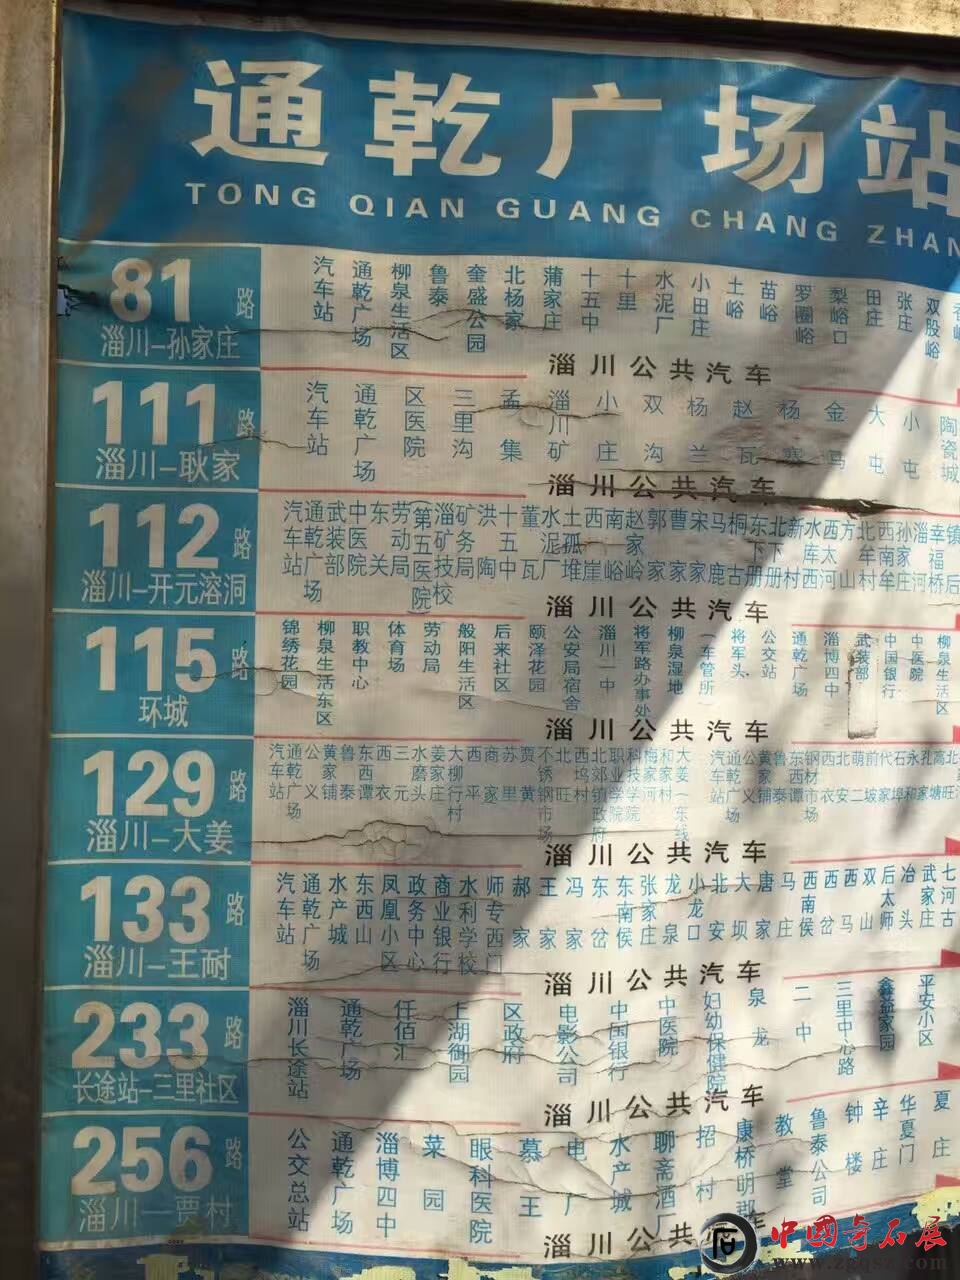 通乾广场站
TONG QIAN GUANG CHANG ZHAN
81路
淄川–孙家庄
汽车站 通乾广场 柳泉生活区 鲁泰 奎盛公园 北杨家 蒲家庄 十五中 十里 水泥厂 小田庄 土峪 苗峪 罗圈峪 梨峪口 田庄 张庄 双股峪
淄川公共汽车
111路
淄川–耿家
汽车站 通乾广场 区医院 三里沟 孟集 淄川矿 小庄 双沟 杨兰 赵瓦 杨寨 金马 大屯 小屯 陶瓷城
淄川公共汽车
112路
淄川–开元溶洞
汽车站 通乾广场 武装部 中医院 东关 劳动局 (第五医院) 淄矿技校 矿务局 洪陶 十五中 董瓦 水泥厂 土孤堆 西崖 南峪 赵家岭 郭家 曹家 宋家 马鹿 桐古 东下册 北下册 新村 水库西 西太河 方山 北牟村 西牟 孙家庄 淄河 幸福桥 镇后
淄川公共汽车
115路
环城
锦绣花园 柳泉生活东区 职教中心 体育场 劳动局 般阳生活区 后来社区 颐泽花园 公安局宿舍 淄川一中 将军路办事处 柳泉湿地 (车管所) 将军头 公交站 通乾广场 淄博四中 武装部 中国银行 中医院 柳泉生活区
淄川公共汽车
129路
淄川–大姜
汽车站 通乾广场 公义 黄家铺 鲁泰 东西谭 西衣 三元 水磨头 姜家庄 大柳行村 西平 商家 苏里 贾黄 不锈钢市场 北旺 西坞村 北郊镇政府 职业学院 科技学院 梅家河 和家村 大姜(东线)
淄川公共汽车
133路
淄川–王耐
汽车站 通乾广场 水产城 东西山 凤凰小区 政务中心 商业银行 水利学校 师专西门 郝家 王家 冯家 东岔 东南侯 张家庄 龙泉 小龙口 北安 大坝 唐家 马庄 西南侯 西岔 西马 双山 后太师 冶头 武家庄
淄川公共汽车
233路
长途站–三里社区
淄川长途站 通乾广场 仟佰汇 上湖御园 区政府 电影公司 中国银行 中医院 妇幼保健院 泉龙 二中 三里中心路 鑫益家园 平安小区
淄川公共汽车
256路
淄川–贾村
公交总站 通乾广场 淄博四中 菜园 眼科医院 慕王 电厂 水产城 聊斋酒厂 招村 康桥明郡 教堂 鲁泰公司 钟楼 辛庄 华夏门 夏庄
淄川公共汽车
中國奇石展
www.zgqsz.com